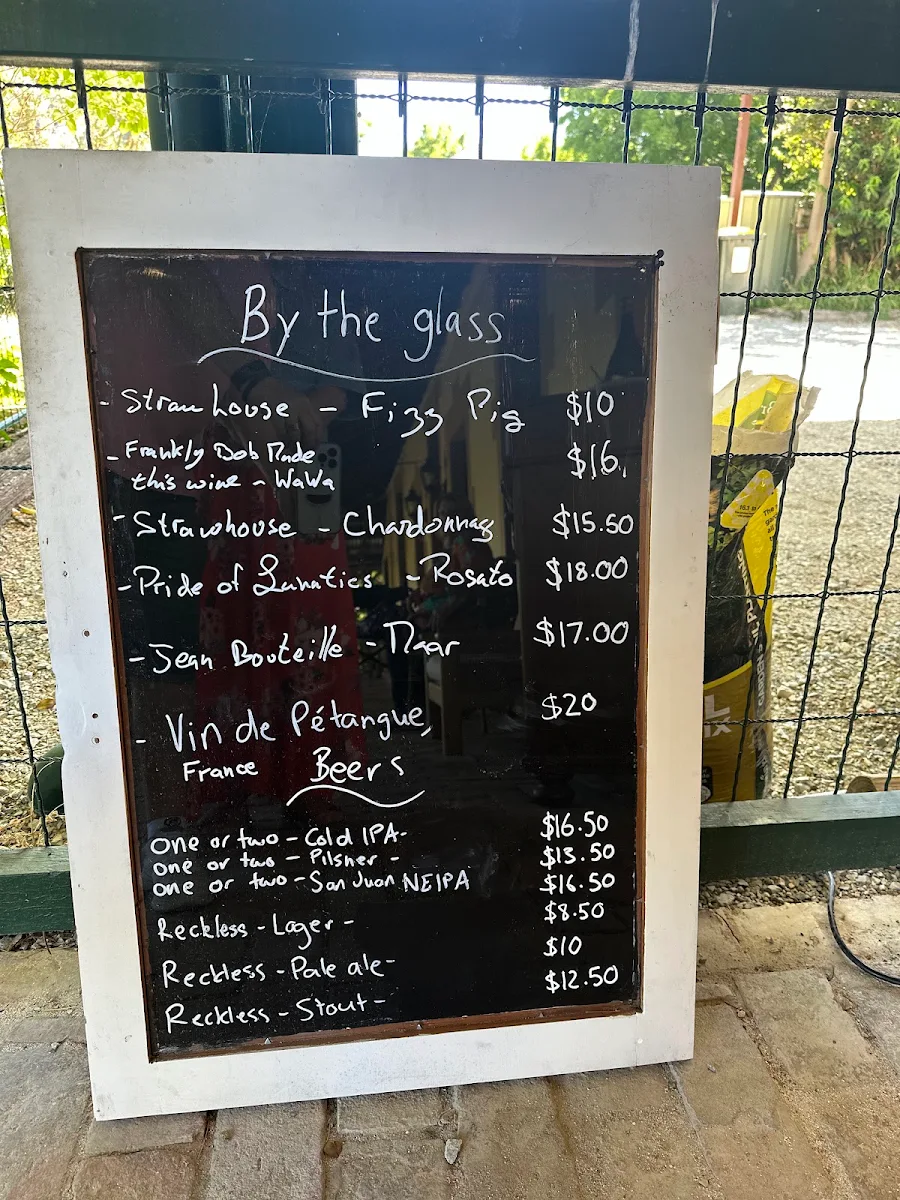 By the glass
- Strawhouse - Fizz Pig $10
- Frankly Bob Made $16.
this wine - WaWa
- Strawhouse - Chardonnay $15.50
- Pride of Lunatics - Rosato $18.00
- Jean Bouteille - Noar $17.00
- Vin de Pétanque, $20
France
Beers
One or two - Cold IPA- $16.50
one or two - Pilsner - $13.50
one or two - San Juan NEIPA $16.50
Reckless - Lager - $8.50
Reckless - Pale ale- $10
Reckless - Stout - $12.50